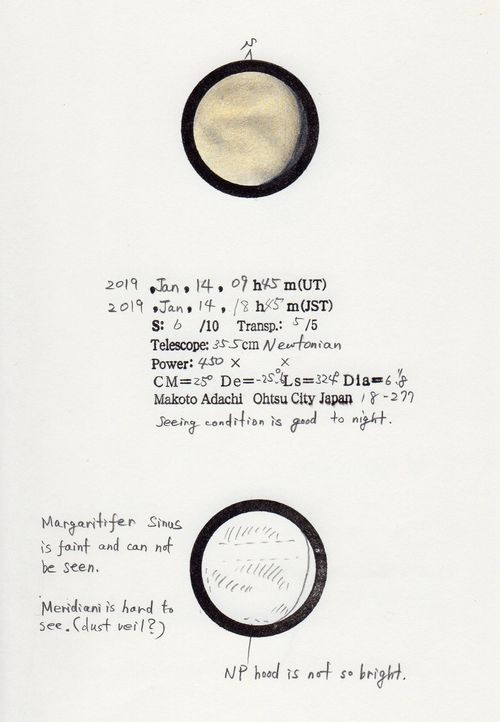 N
2019 , Jan , 14 , 09 h 45 m (UT)
2019 , Jan , 14 , 18 h 45 m (JST)
S: 6 /10 Transp.: 5 /5
Telescope: 355 cm Newtonian
Power: 450 × ×
CM=25° De=-25.6 Ls=324° Dia=6."8
Makoto Adachi Ohtsu City Japan 18-277
Seeing condition is good to night.
Margaritifer Sinus
is faint and can not
be seen.
Meridiani is hard to
see. (dust veil?)
NP hood is not so bright.